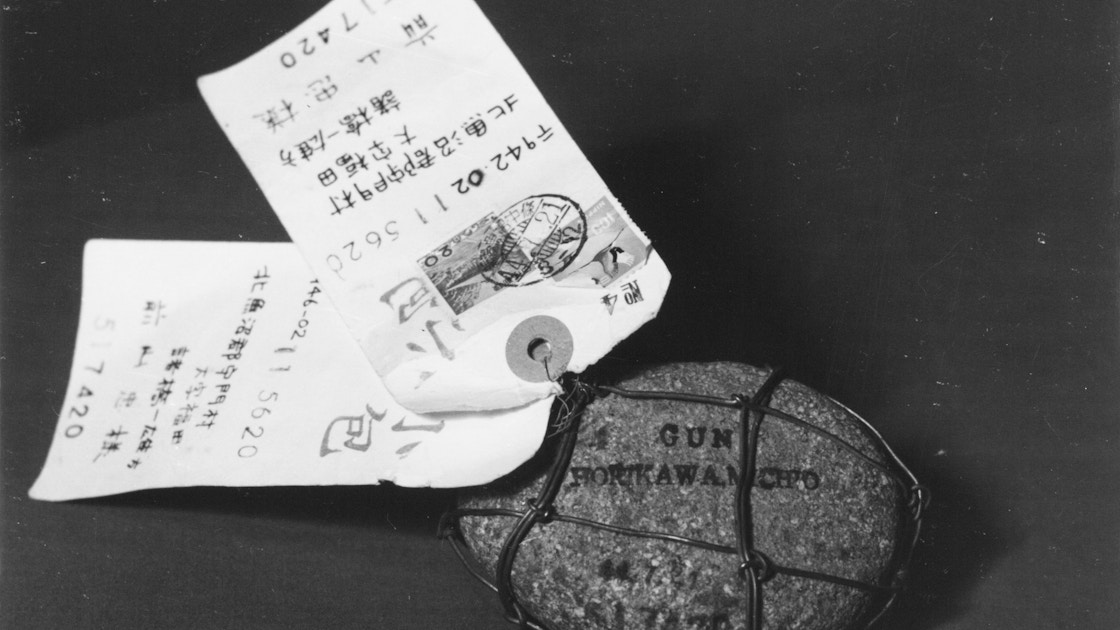 〒942.02
115620
北魚沼郡守門村
大字福田
諸橋一雄方
前山忠様
517420
小包
20
946-02
115620
北魚沼郡守門村
大字福田
諸橋一雄方
前山忠様
517420
小包
GUN
HORIKAWA.MICHIO
44.7.21